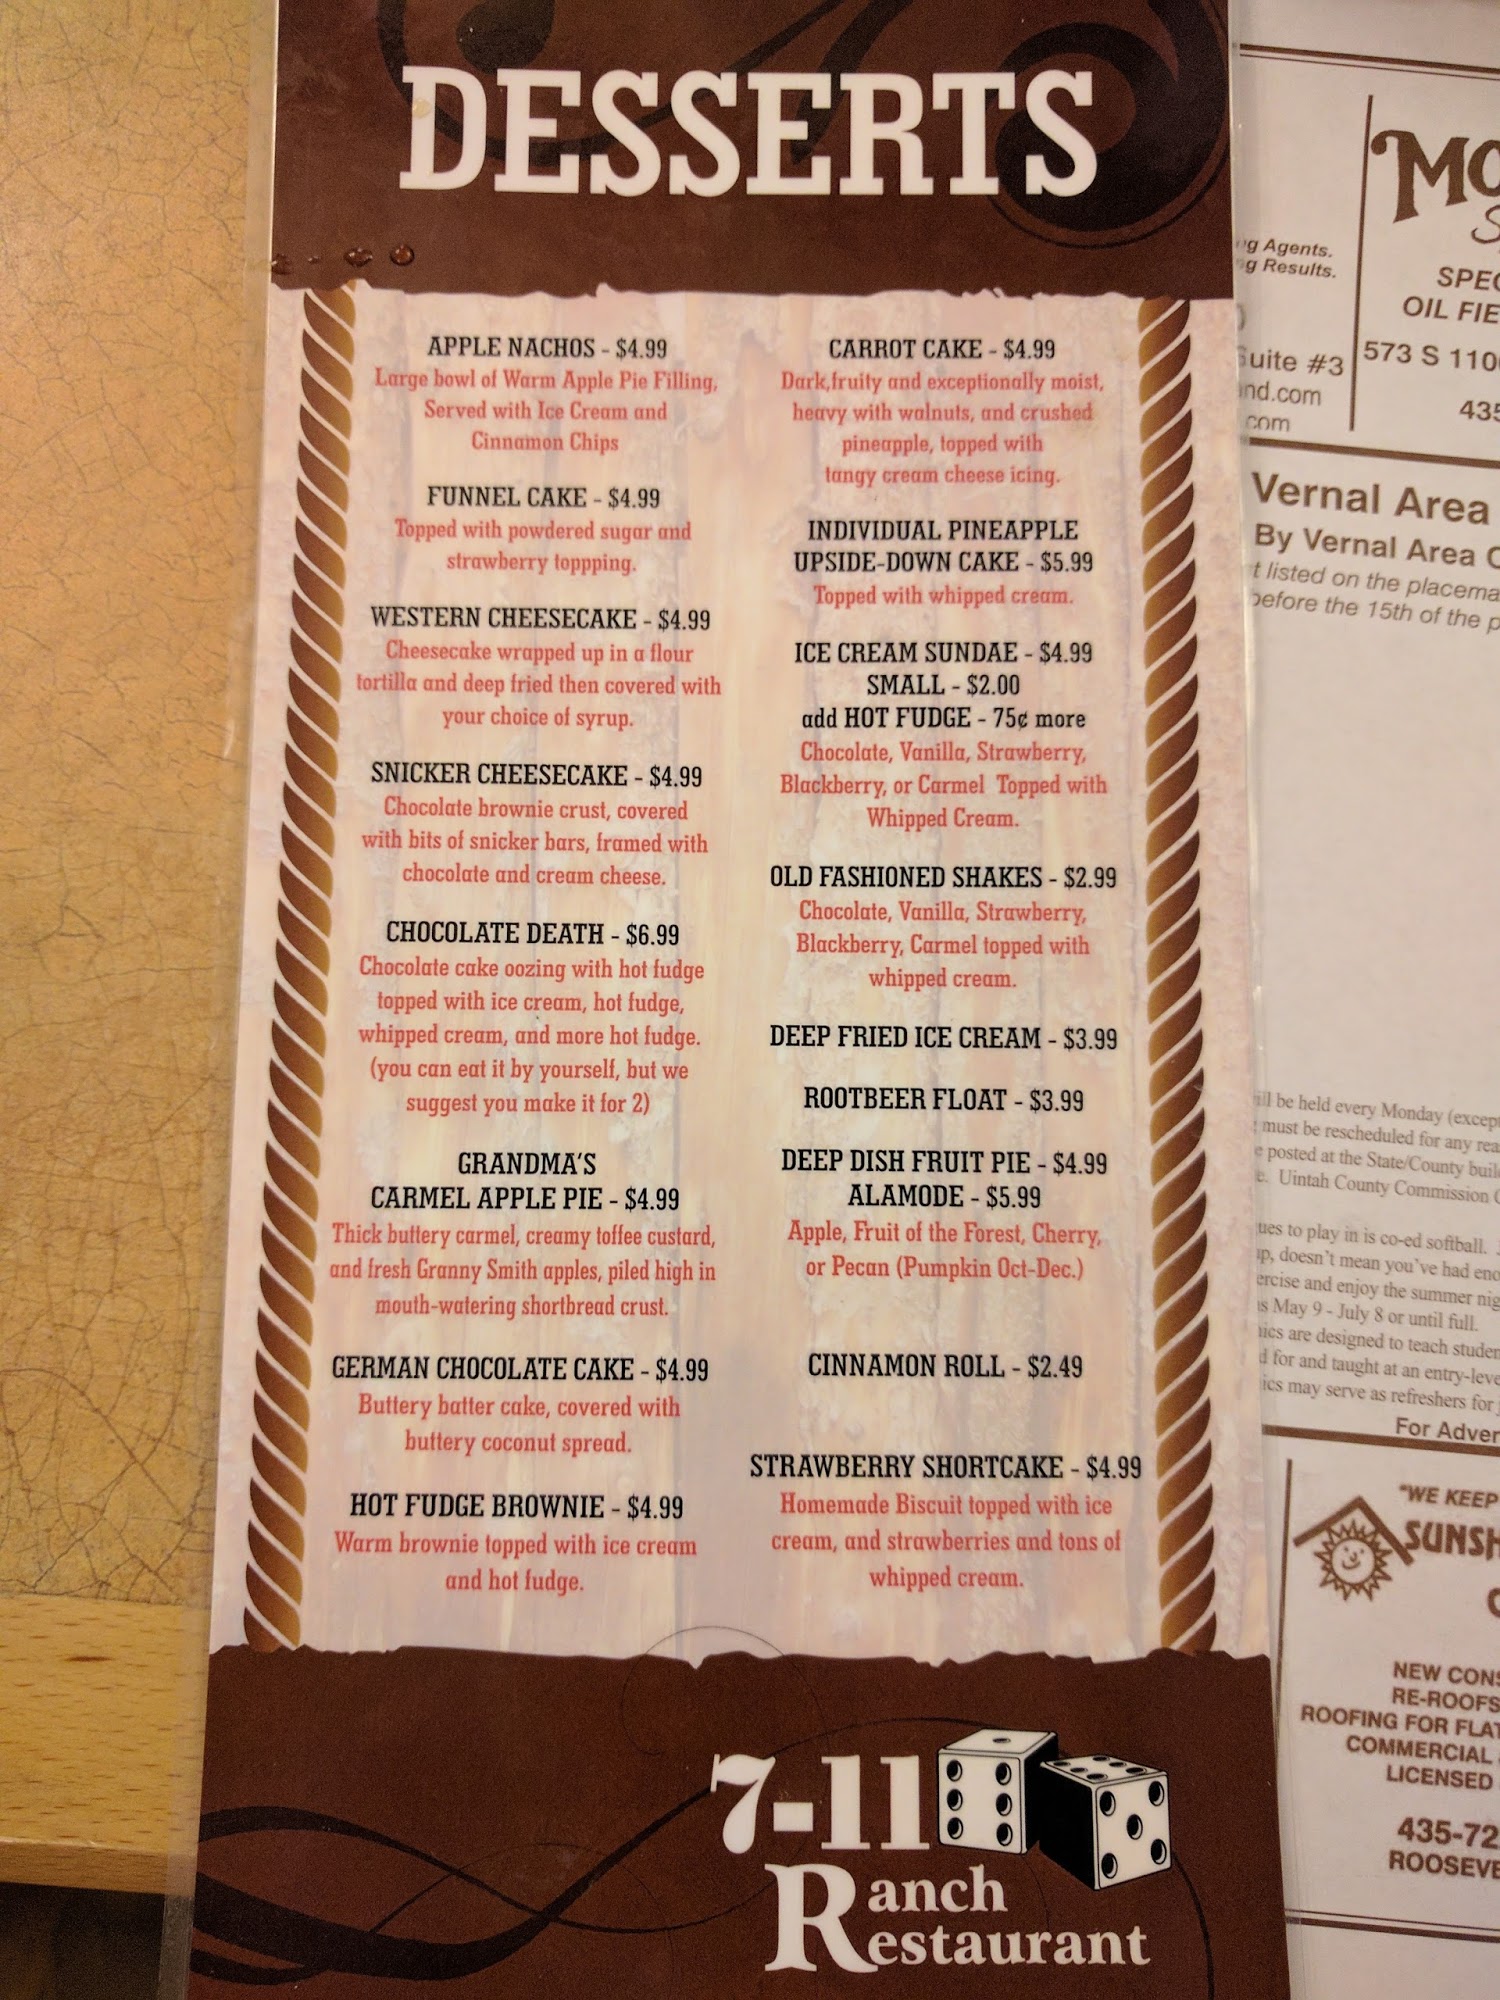 DESSERTS
APPLE NACHOS - $4.99
Large bowl of Warm Apple Pie Filling,
Served with Ice Cream and
Cinnamon Chips
FUNNEL CAKE - $4.99
Topped with powdered sugar and
strawberry toppping.
WESTERN CHEESECAKE - $4.99
Cheesecake wrapped up in a flour
tortilla and deep fried then covered with
your choice of syrup.
SNICKER CHEESECAKE - $4.99
Chocolate brownie crust, covered
with bits of snicker bars, framed with
chocolate and cream cheese.
CHOCOLATE DEATH - $6.99
Chocolate cake oozing with hot fudge
topped with ice cream, hot fudge,
whipped cream, and more hot fudge.
(you can eat it by yourself, but we
suggest you make it for 2)
GRANDMA'S
CARMEL APPLE PIE - $4.99
Thick buttery carmel, creamy toffee custard,
and fresh Granny Smith apples, piled high in
mouth-watering shortbread crust.
GERMAN CHOCOLATE CAKE - $4.99
Buttery batter cake, covered with
buttery coconut spread.
HOT FUDGE BROWNIE - $4.99
Warm brownie topped with ice cream
and hot fudge.
CARROT CAKE - $4.99
Dark,fruity and exceptionally moist,
heavy with walnuts, and crushed
pineapple, topped with
tangy cream cheese icing.
INDIVIDUAL PINEAPPLE
UPSIDE-DOWN CAKE - $5.99
Topped with whipped cream.
ICE CREAM SUNDAE - $4.99
SMALL - $2.00
add HOT FUDGE - 75¢ more
Chocolate, Vanilla, Strawberry,
Blackberry, or Carmel Topped with
Whipped Cream.
OLD FASHIONED SHAKES - $2.99
Chocolate, Vanilla, Strawberry,
Blackberry, Carmel topped with
whipped cream.
DEEP FRIED ICE CREAM - $3.99
ROOTBEER FLOAT - $3.99
DEEP DISH FRUIT PIE - $4.99
ALAMODE - $5.99
Apple, Fruit of the Forest, Cherry,
or Pecan (Pumpkin Oct-Dec.)
CINNAMON ROLL - $2.49
STRAWBERRY SHORTCAKE - $4.99
Homemade Biscuit topped with ice
cream, and strawberries and tons of
whipped cream.
7-11
Ranch
Restaurant
Agents.
Results.
Suite #3
com
OIL
573 S
Vernal Area
By Vernal Area
listed on the
before the 15th of the
be held every Monday (except
must be rescheduled for any
posted at the State/County
Uintah County Commission
to play in is co-ed softball.
doesn't mean you've had
and enjoy the summer
May 9 - July 8 or until full.
are designed to teach
for and taught at an
may serve as refreshers for
For
"WE KEEP
NEW
RE-ROOFS
ROOFING FOR
COMMERCIAL
LICENSED